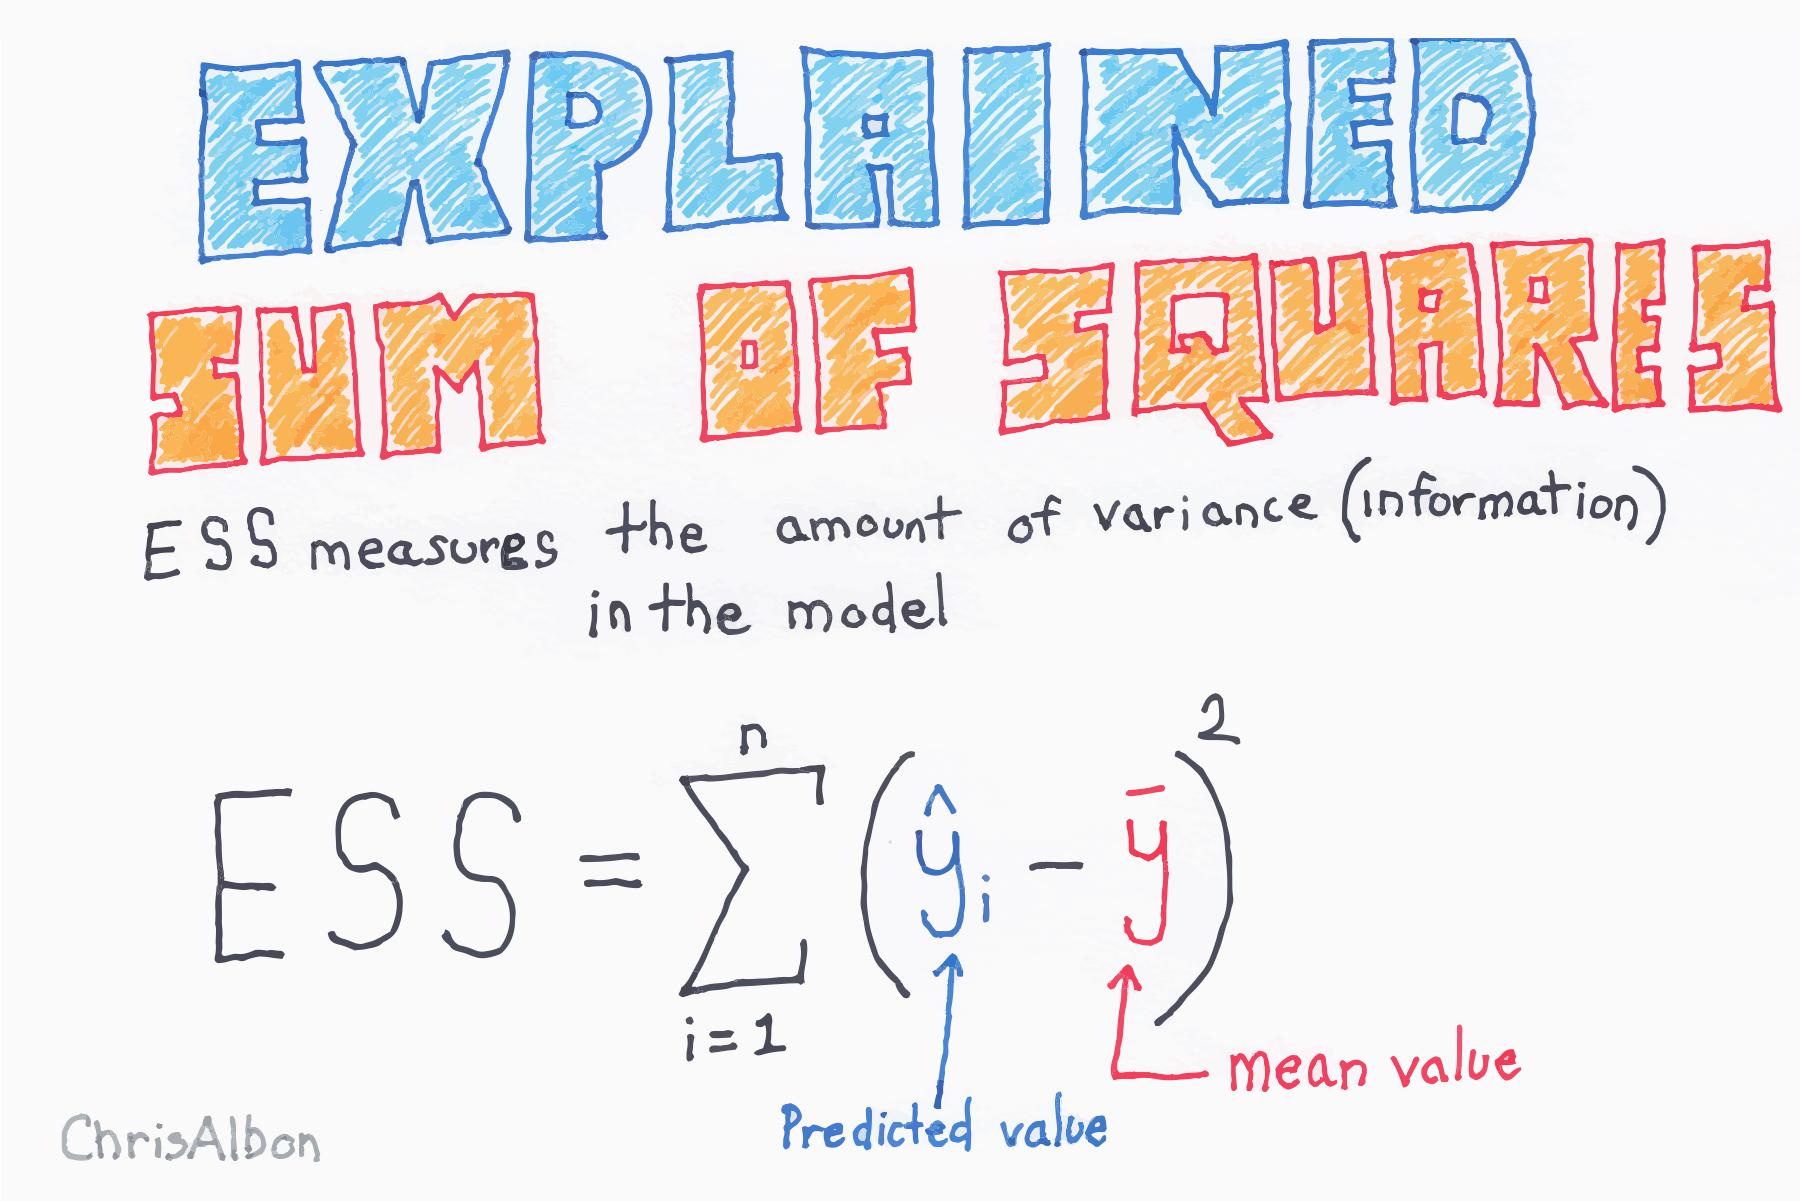 EXPLAINED
SUM OF SQUARES
ESS measures the amount of variance (information)
in the model
n
ESS = Σ (ŷᵢ - ȳ)²
i = 1
mean value
Predicted value
ChrisAlbon